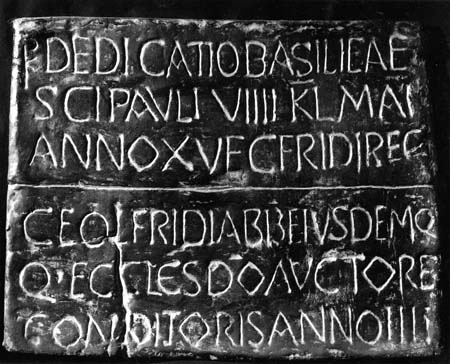 ⳨ DEDICATIO BASILICAE
SCI PAVLI VIIII KL MAI
ANNO XV ECFRIDI REG
CEOLFRIDI ABB EIVSDEMQ
Q' ECCLES DO AVCTORE
CONDITORIS ANNO IIII